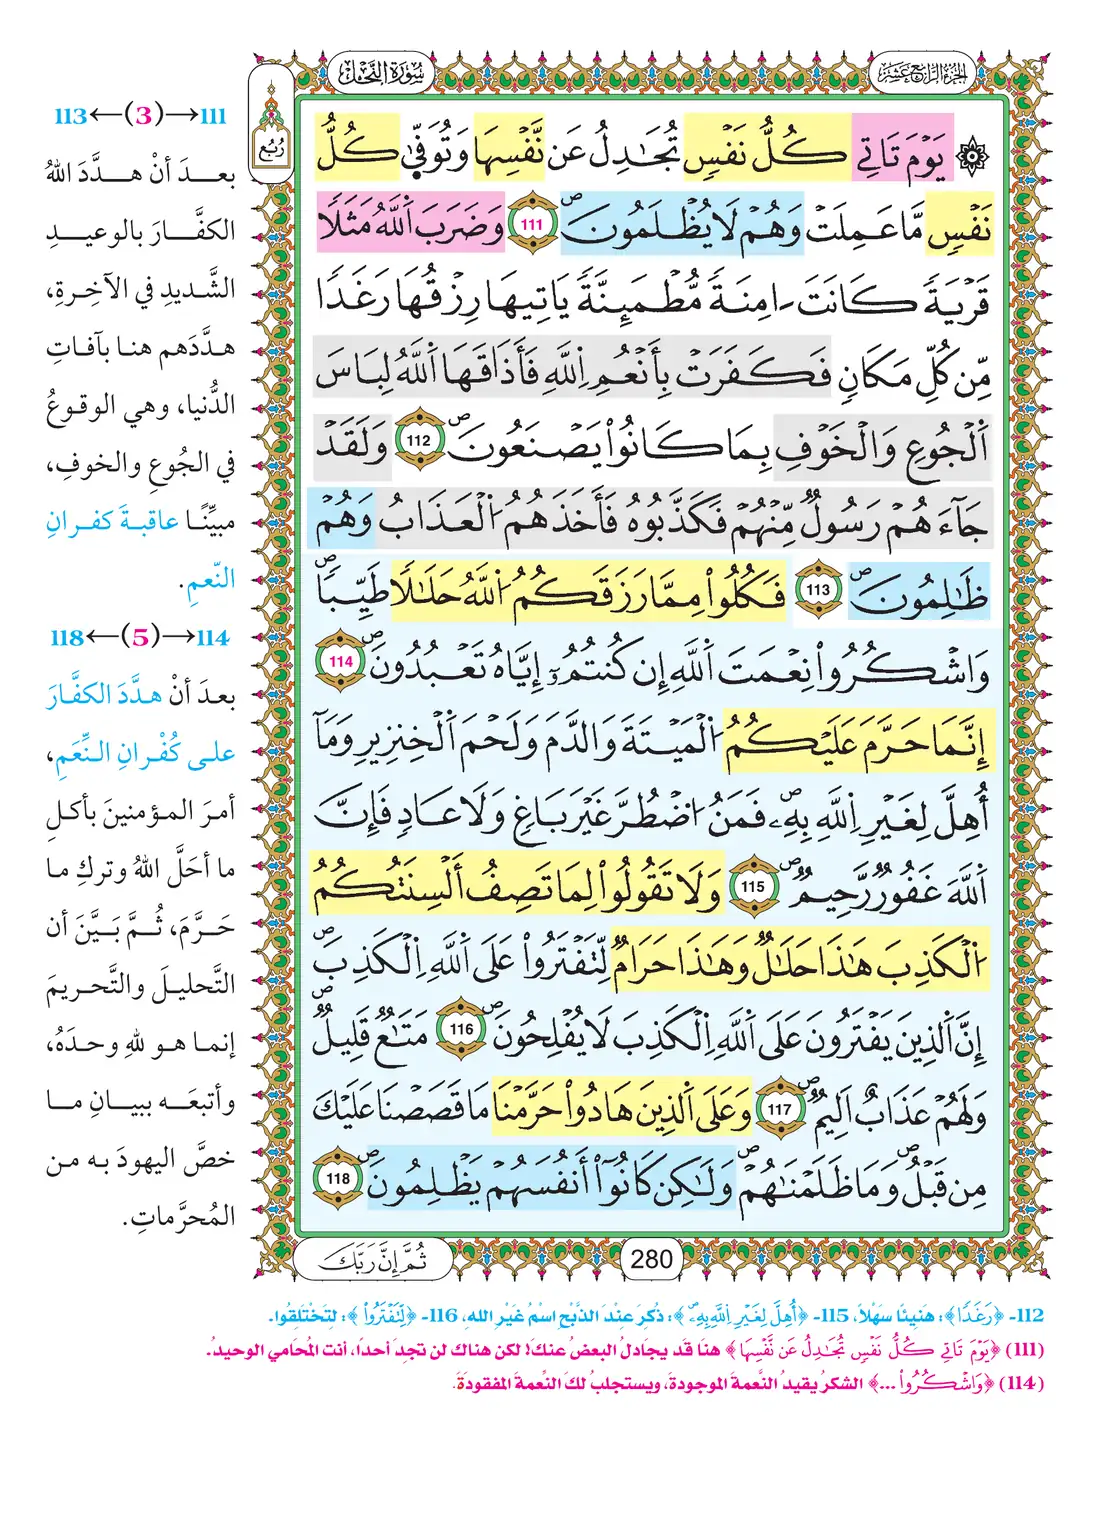 الجزء الرابع عشر
سورة النحل
ربع
يَوْمَ تَاتِي كُلُّ نَفْسٍ تُجَادِلُ عَن نَّفْسِهَا وَتُوَفّٰى كُلُّ
نَفْسٍ مَّا عَمِلَتْ وَهُمْ لَا يُظْلَمُونَ ۖ 111 وَضَرَبَ اَللَّهُ مَثَلًا
قَرْيَةً كَانَتَ ـَامِنَةً مُّطْمَئِنَّةً يَاتِيهَا رِزْقُهَا رَغَدًا
مِّن كُلِّ مَكَانٍ فَكَفَرَتْ بِأَنْعُمِ اِللَّهِ فَأَذَاقَهَا اَللَّهُ لِبَاسَ
اَلْجُوعِ وَالْخَوْفِ بِمَا كَانُوا۟ يَصْنَعُونَ ۖ 112 وَلَقَدْ
جَآءَهُمْ رَسُولٌ مِّنْهُمْ فَكَذَّبُوهُ فَأَخَذَهُمُ اُلْعَذَابُ وَهُمْ
ظَٰلِمُونَ ۖ 113 فَكُلُوا۟ مِمَّا رَزَقَكُمُ اُللَّهُ حَلَٰلًا طَيِّبًا ۖ
وَاشْكُرُوا۟ نِعْمَتَ اَللَّهِ إِن كُنتُمُۥٓ إِيَّاهُ تَعْبُدُونَ ۖ 114
إِنَّمَا حَرَّمَ عَلَيْكُمُ اُلْمَيْتَةَ وَالدَّمَ وَلَحْمَ اَلْخِنزِيرِ وَمَآ
أُهِلَّ لِغَيْرِ اِللَّهِ بِهِۦ ۖ فَمَنُ اُضْطُرَّ غَيْرَ بَاغٍ وَلَا عَادٍ فَإِنَّ
اَللَّهَ غَفُورٌ رَّحِيمٌ ۖ 115 وَلَا تَقُولُوا۟ لِمَا تَصِفُ أَلْسِنَتُكُمُ
اُلْكَذِبَ هَٰذَا حَلَٰلٌ وَهَٰذَا حَرَامٌ لِّتَفْتَرُوا۟ عَلَى اَللَّهِ اِلْكَذِبَ ۖ
إِنَّ اَلذِينَ يَفْتَرُونَ عَلَى اَللَّهِ اِلْكَذِبَ لَا يُفْلِحُونَ ۖ 116 مَتَٰعٌ قَلِيلٌ ۖ
وَلَهُمْ عَذَابٌ اَلِيمٌ ۖ 117 وَعَلَى اَلذِينَ هَادُوا۟ حَرَّمْنَا مَا قَصَصْنَا عَلَيْكَ
مِن قَبْلُ ۖ وَمَا ظَلَمْنَٰهُمْ ۖ وَلَٰكِن كَانُوٓا۟ أَنفُسَهُمْ يَظْلِمُونَ ۖ 118
280
ثُمَّ إِنَّ رَبَّكَ
111→(3)←113
بعدَ أنْ هدَّدَ اللهُ
الكفَّارَ بالوعيدِ
الشَّديدِ في الآخِرةِ،
هدَّدَهم هنا بآفاتِ
الدُّنيا، وهي الوقوعُ
في الجُوعِ والخوفِ،
مبيِّنًا عاقبةَ كفرانِ
النّعمِ.
114→(5)←118
بعدَ أنْ هدَّدَ الكفَّارَ
على كُفْرانِ النِّعَمِ،
أمرَ المؤمنينَ بأكلِ
ما أحَلَّ اللهُ وتركِ ما
حَرَّمَ، ثُمَّ بَيَّنَ أن
التَّحليلَ والتَّحريمَ
إنما هو للهِ وحدَهُ،
وأتبعَه ببيانِ ما
خصَّ اليهودَ به من
المُحرَّماتِ.
112- ﴿رَغَدًا﴾: هَنِيئًا سَهْلًا، 115- ﴿أُهِلَّ لِغَيْرِ اِللَّهِ بِهِۦ﴾: ذُكِرَ عِنْدَ الذَّبْحِ اسْمُ غَيْرِ اللهِ، 116- ﴿لِّتَفْتَرُوا۟﴾: لِتَخْتَلِقُوا.
(111) ﴿يَوْمَ تَاتِي كُلُّ نَفْسٍ تُجَادِلُ عَن نَّفْسِهَا﴾ هنا قد يجادلُ البعضُ عنكَ! لكن هناك لن تجدَ أحدا، أنت المُحامي الوحيدُ.
(114) ﴿وَاشْكُرُوا۟ ...﴾ الشكرُ يقيدُ النَّعمةَ الموجودةَ، ويستجلبُ لكَ النِّعمةَ المفقودةَ.